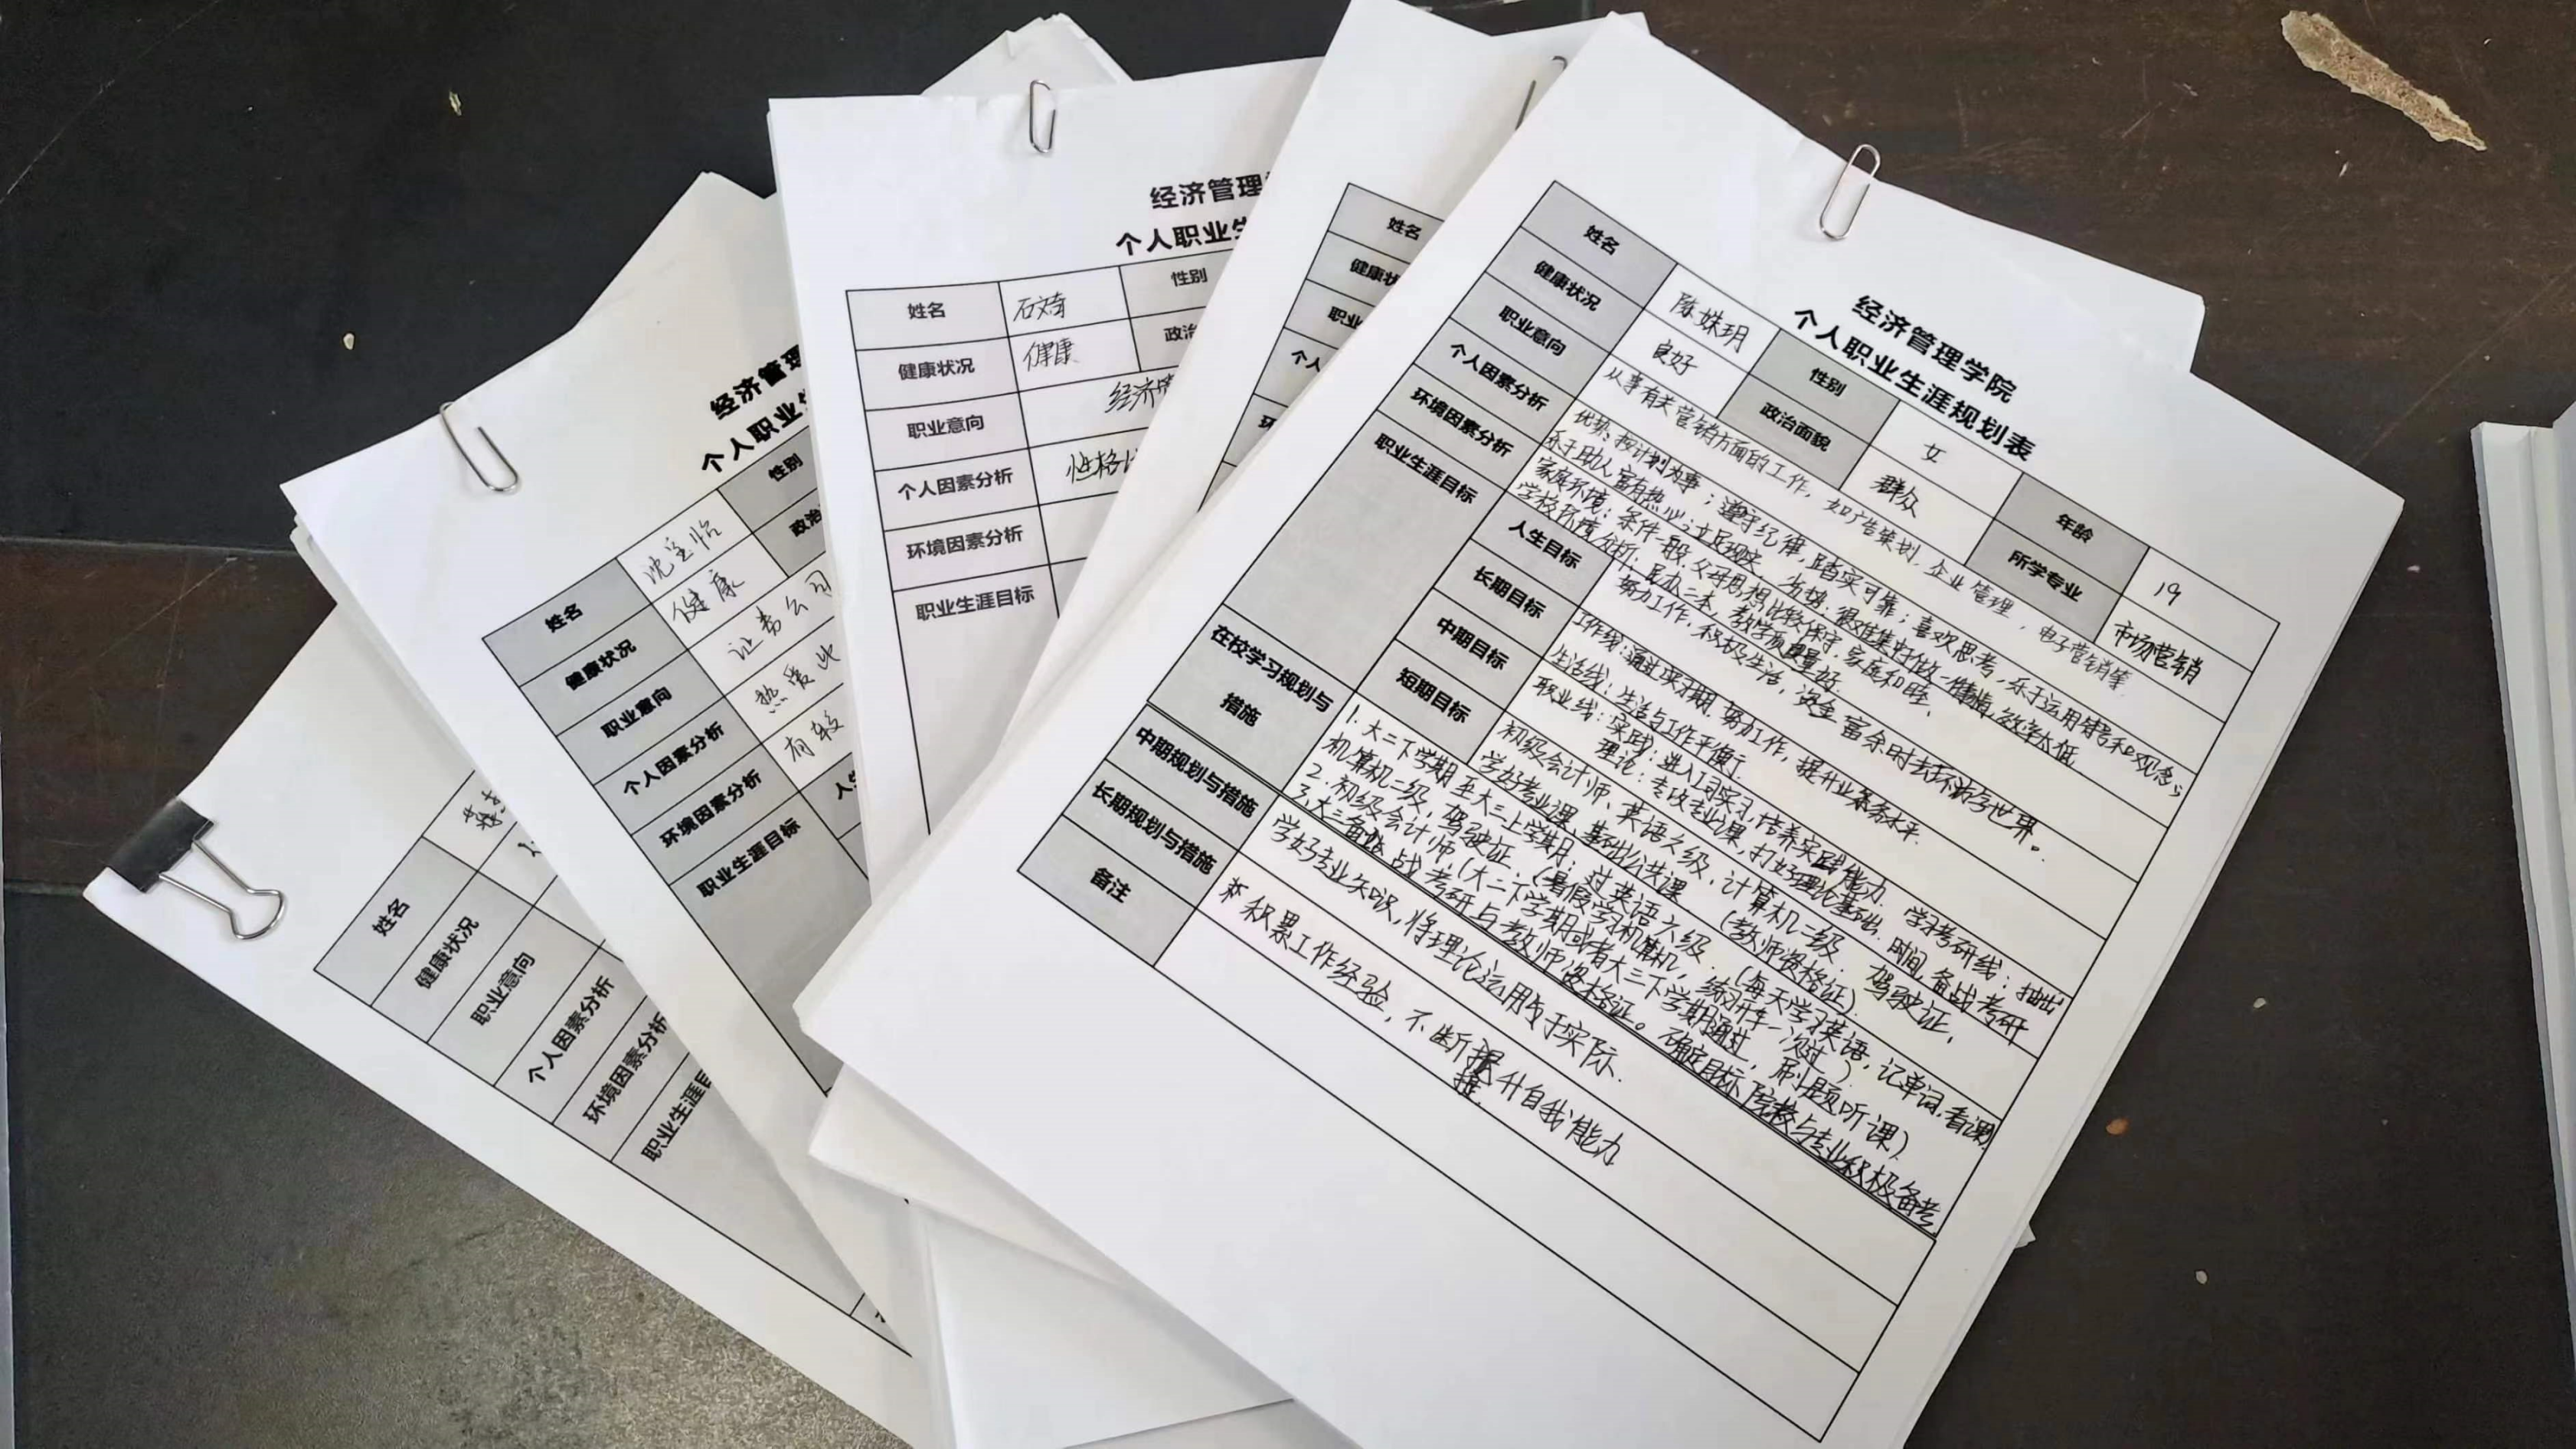 经济管理学院
个人职业生涯规划表
姓名 陈姝玥 性别 女 年龄 19
健康状况 良好 政治面貌 群众 所学专业 市场营销
职业意向 从事有关营销方面的工作，如广告策划，企业管理，电子营销等
个人因素分析 优势：按计划为事；遵守纪律，踏实可靠；喜欢思考，乐于运用符号和观念；
乐于助人富有热心；立足现实。劣势：很难集中做一件事情，效率太低
环境因素分析 家庭环境：条件一般，父母思想比较保守，家庭和睦、
学校环境分析：民办二本，教学质量好.
职业生涯目标
人生目标 努力工作，积极生活，资金富余时去环游世界。
长期目标 工作线：通过实习期，努力工作，提升业务水平
生活线：生活与工作平衡
中期目标 职业线：实践：进入公司实习，培养实践能力. 学习考研线：抽出
理论：专攻专业课，打好理论基础. 时间，备战考研
短期目标 初级会计师、英语六级，计算机二级. 驾驶证，
学好专业课，基础公共课 （教师资格证）.
在校学习规划与
措施
1. 大二下学期至大三上学期：过英语六级.（每天学习英语，记单词，看课）
机算机二级，驾驶证.（暑假学习机算机，练习开车一次过）.
2. 初级会计师.（大二下学期或者大三下学期通过，刷题听课）
3. 大三备战考研与教师资格证。确定目标院校与专业积极备考
中期规划与措施 学好专业知识，将理论运用于实际.
长期规划与措施 积累工作经验，不断提升自我能力
备注
姓名
健康状
职业
个人
环
经济管理
个人职业生
姓名 性别
健康状况 健康 政治
职业意向 经济
个人因素分析 性格
环境因素分析
职业生涯目标
经济管理
个人职业生
姓名 性别
健康状况 健康 政治
职业意向 证券公司
个人因素分析 热爱
环境因素分析 有较
职业生涯目标 人生
姓名
健康状况
职业意向
个人因素分析
环境因素分析
职业生涯目